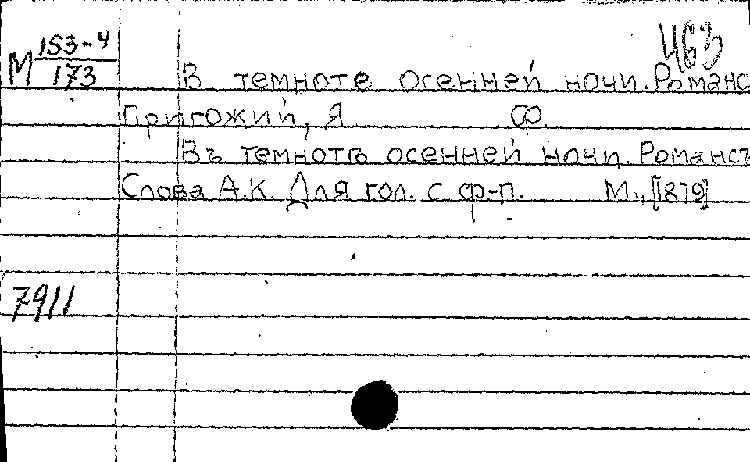 463
М 153-4
173
В темноте осенней ночи. Романс
Пригожий, Я. Ф.
Въ темнотѣ осенней ночи Романсъ
Слова А.К Для гол. с ф-п. М., [1879]
7911